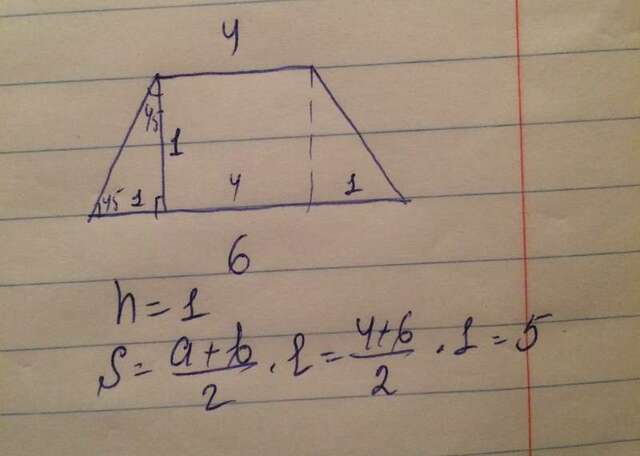 4
45 1
45 1 4 1
6
h = 1
S = (a+b)/2 · 1 = (4+6)/2 · 1 = 5